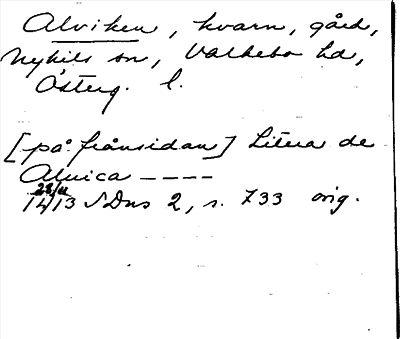 Alviken, kvarn, gård,
Nykils sn, Valkebo hd,
Österg. l.
[på frånsidan] Litera de
Aluica ----
28/11
1413 SDns 2, s. 733 orig.